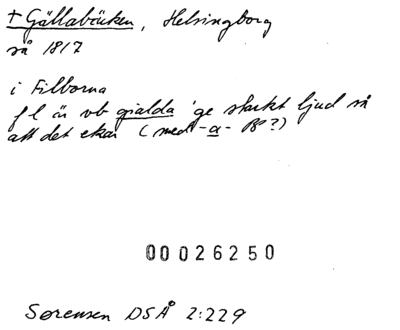 + Gällabäcken, Helsingborg
så 1817
i Filborna
f l är vb gialda 'ge starkt ljud så
att det ekar (med -a- Bf?)
00026250
Sørensen DSÅ 2:229